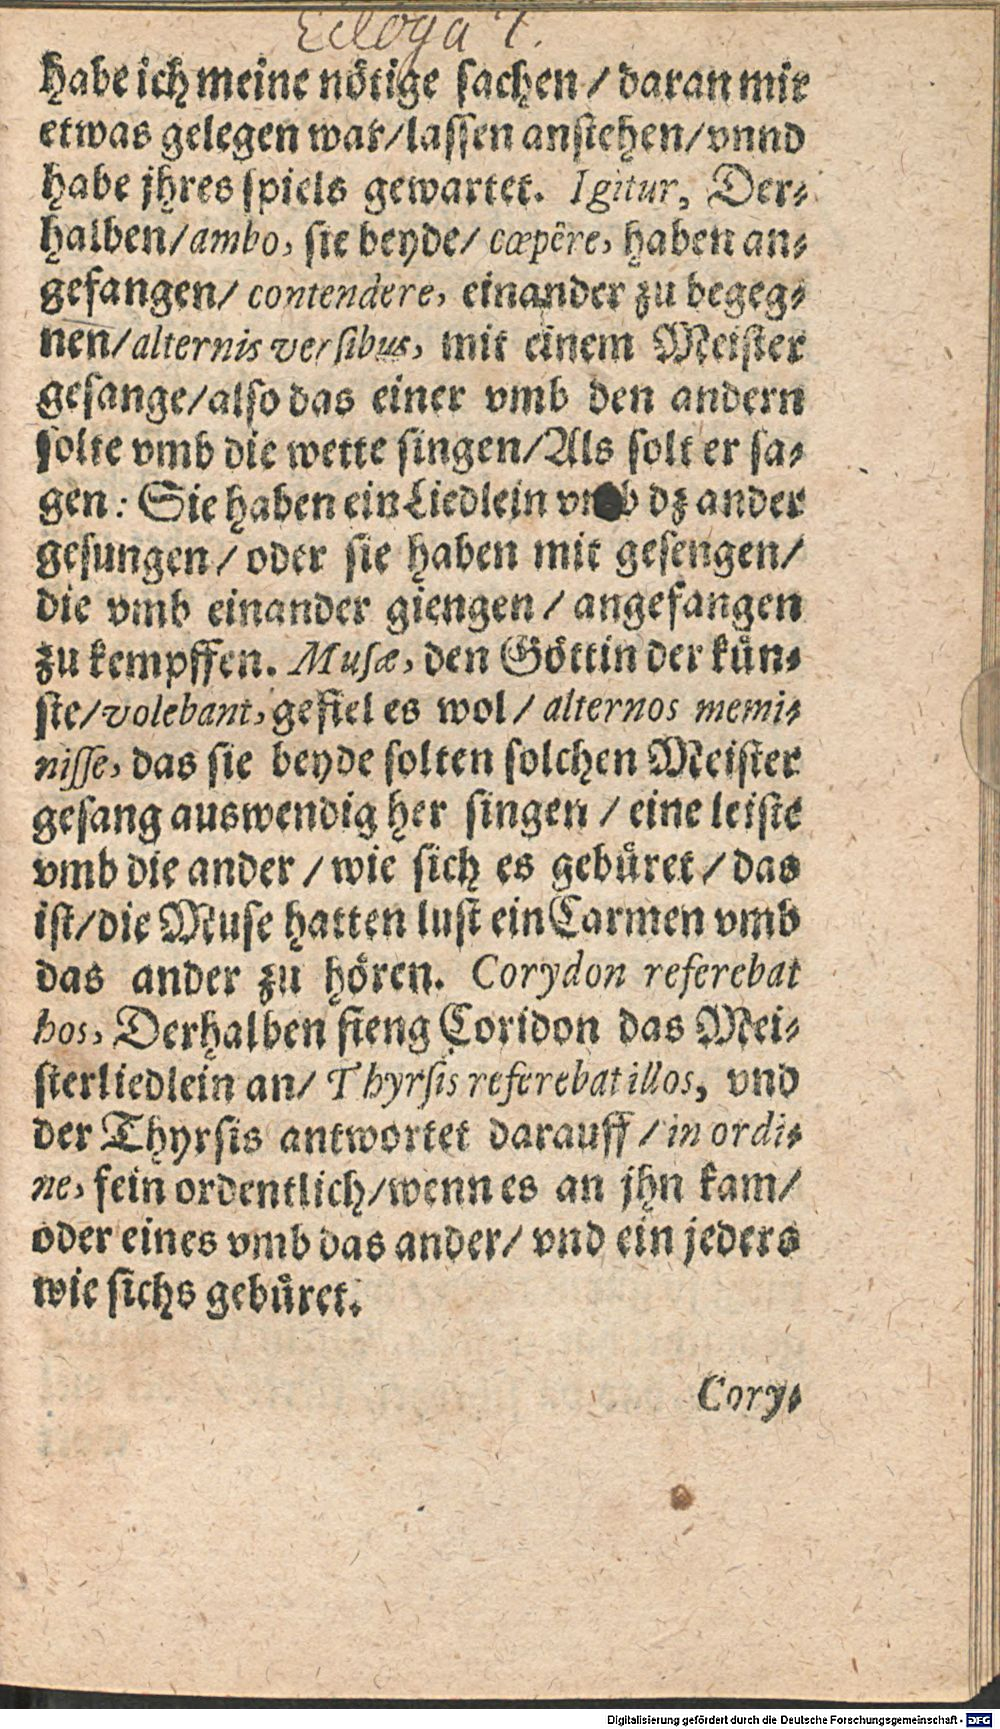 Ecloga 7.
habe ich meine nötige sachen / daran mir
etwas gelegen war/lassen anstehen/vnnd
habe jhres spiels gewartet. Igitur, Der-
halben/ambo, sie beyde/ cœpêre, haben an-
gefangen/ contendere, einander zu begeg-
nen/alternis versibus, mit einem Meister
gesange/also das einer vmb den andern
solte vmb die wette singen/Als solt er sa-
gen: Sie haben ein Liedlein vmb dz ander
gesungen/ oder sie haben mit gesengen/
die vmb einander giengen / angefangen
zu kempffen. Musæ, den Göttin der kün-
ste/volebant, gefiel es wol / alternos memi-
nisse, das sie beyde solten solchen Meister
gesang auswendig her singen / eine leiste
vmb die ander / wie sich es gebüret / das
ist/die Muse hatten lust ein Carmen vmb
das ander zu hören. Corydon referebat
hos, Derhalben fieng Coridon das Mei-
sterliedlein an/ Thyrsis referebat illos, vnd
der Thyrsis antwortet darauff / in ordi-
ne, fein ordentlich/wenn es an jhn kam/
oder eines vmb das ander/ vnd ein jeders
wie sichs gebüret.
Cory-
Digitalisierung gefördert durch die Deutsche Forschungsgemeinschaft - DFG